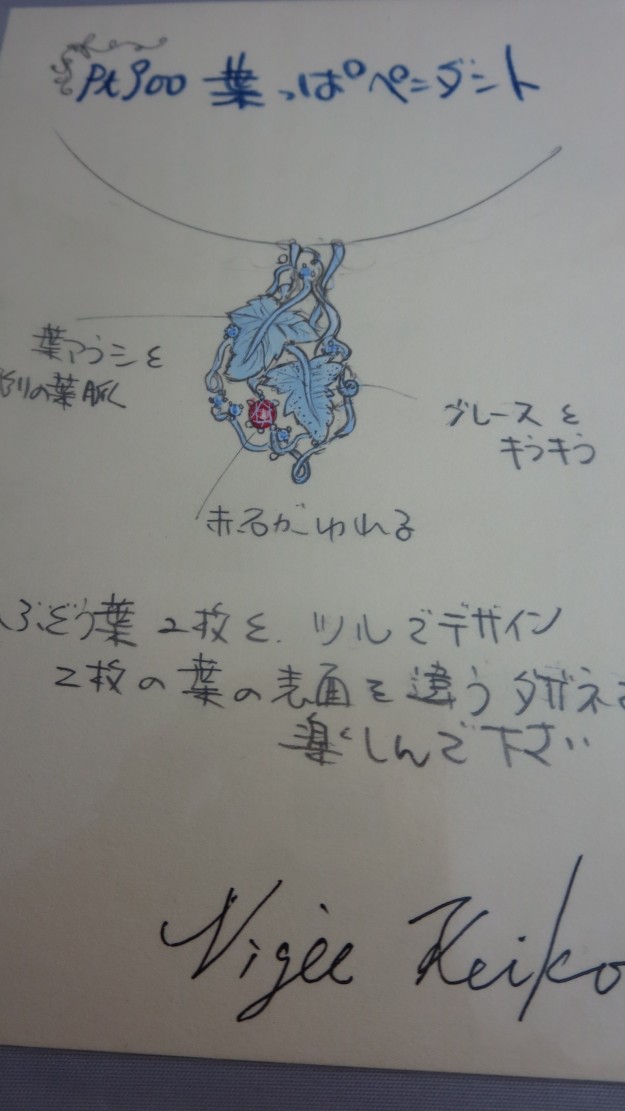 Pt900 葉っぱペンダント
葉アウシを
彫りの葉脈く
グレースを
キラキラ
赤石がゆれる
ぶどう葉2枚を、ツルでデザイン
2枚の葉の表面を違うタガネで
楽しんで下さい
Vigée Keiko